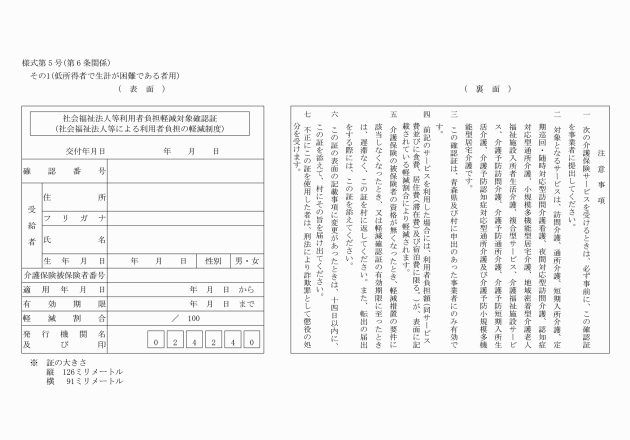 様式第5号(第6条関係)
その1(低所得者で生計が困難である者用)
(表 面)
社会福祉法人等利用者負担軽減対象確認証
(社会福祉法人等による利用者負担の軽減制度)
交付年月日 年 月 日
確認番号
受給者
住所
フリガナ
氏名
生年月日 年 月 日 性別 男・女
介護保険被保険者番号
適用年月日 年 月 日 から
有効期限 年 月 日 まで
軽減割合 / 100
発行機関名
及び印
0 2 4 2 4 0
※ 証の大きさ
縦 126ミリメートル
横 91ミリメートル
(裏 面)
注意事項
一 次の介護保険サービスを受けるときは、必ず事前に、この確認証
を事業者に提出してください。
二 対象となるサービスは、訪問介護、通所介護、短期入所介護、定
期巡回・随時対応型訪問介護看護、夜間対応型訪問介護、認知症
対応型通所介護、小規模多機能型居宅介護、地域密着型介護老人
福祉施設入所者生活介護、複合型サービス、介護福祉施設サービ
ス、介護予防訪問介護、介護予防通所介護、介護予防短期入所生
活介護、介護予防認知症対応型通所介護及び介護予防小規模多機
能型居宅介護です。
三 この確認証は、青森県及び村に申出のあった事業者にのみ有効で
す。
四 前記のサービスを利用した場合には、利用者負担額(同サービス
費並びに食費、居住費(滞在費)及び宿泊費に限る。)が、表面に記
載されている軽減割合により軽減されます。
五 介護保険の被保険者の資格が無くなったとき、軽減措置の要件に
該当しなくなったとき、又は軽減確認証の有効期限に至ったとき
は、遅滞なく、この証を村に返してください。また、転出の届出
をする際には、この証を添えてください。
六 この証の表面の記載事項に変更があったときは、十四日以内に、
この証を添えて、村にその旨を届け出てください。
七 不正にこの証を使用した者は、刑法により詐欺罪として懲役の処
分を受けます。